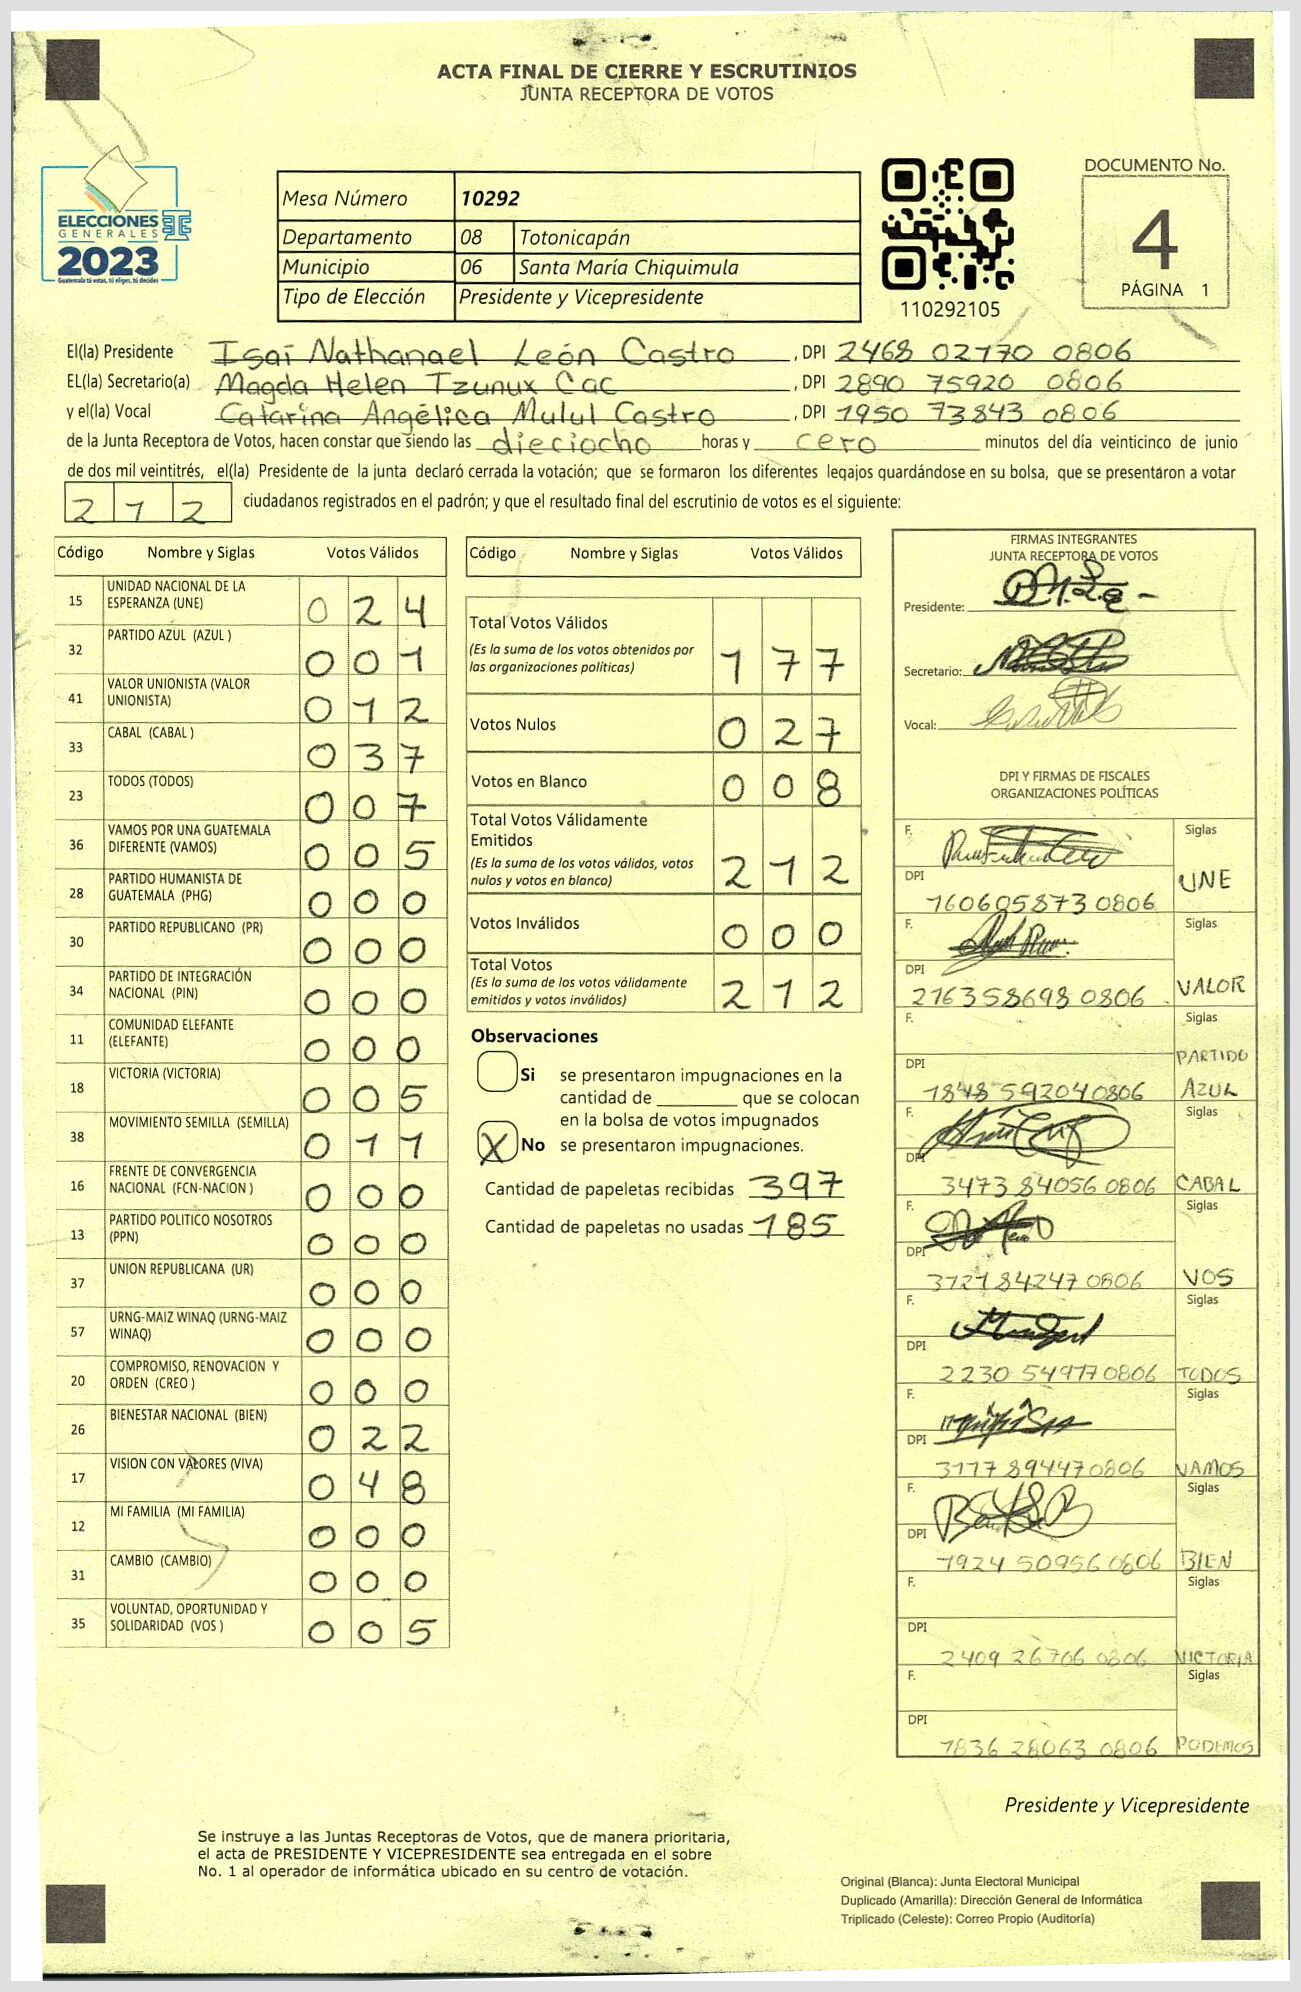 ACTA FINAL DE CIERRE Y ESCRUTINIOS
JUNTA RECEPTORA DE VOTOS
ELECCIONES
GENERALES
2023
Guatemala tú votas, tú eliges, tú decides
Mesa Número 10292
Departamento 08 Totonicapán
Municipio 06 Santa María Chiquimula
Tipo de Elección Presidente y Vicepresidente
110292105
DOCUMENTO No.
4
PÁGINA 1
El(la) Presidente Isaí Nathanael León Castro, DPI 2468 02770 0806
EL(la) Secretario(a) Magda Helen Tzunux Cac, DPI 2890 75920 0806
y el(la) Vocal Catarina Angélica Mulul Castro, DPI 1950 73843 0806
de la Junta Receptora de Votos, hacen constar que siendo las dieciocho horas y cero minutos del día veinticinco de junio
de dos mil veintitrés, el(la) Presidente de la junta declaró cerrada la votación; que se formaron los diferentes legajos guardándose en su bolsa, que se presentaron a votar
212 ciudadanos registrados en el padrón; y que el resultado final del escrutinio de votos es el siguiente:
Código Nombre y Siglas Votos Válidos
15 UNIDAD NACIONAL DE LA ESPERANZA (UNE) 024
32 PARTIDO AZUL (AZUL ) 001
41 VALOR UNIONISTA (VALOR UNIONISTA) 012
33 CABAL (CABAL ) 037
23 TODOS (TODOS) 007
36 VAMOS POR UNA GUATEMALA DIFERENTE (VAMOS) 005
28 PARTIDO HUMANISTA DE GUATEMALA (PHG) 000
30 PARTIDO REPUBLICANO (PR) 000
34 PARTIDO DE INTEGRACIÓN NACIONAL (PIN) 000
11 COMUNIDAD ELEFANTE (ELEFANTE) 000
18 VICTORIA (VICTORIA) 005
38 MOVIMIENTO SEMILLA (SEMILLA) 011
16 FRENTE DE CONVERGENCIA NACIONAL (FCN-NACION ) 000
13 PARTIDO POLITICO NOSOTROS (PPN) 000
37 UNION REPUBLICANA (UR) 000
57 URNG-MAIZ WINAQ (URNG-MAIZ WINAQ) 000
20 COMPROMISO, RENOVACION Y ORDEN (CREO ) 000
26 BIENESTAR NACIONAL (BIEN) 022
17 VISION CON VALORES (VIVA) 048
12 MI FAMILIA (MI FAMILIA) 000
31 CAMBIO (CAMBIO) 000
35 VOLUNTAD, OPORTUNIDAD Y SOLIDARIDAD (VOS ) 005
Código Nombre y Siglas Votos Válidos
Total Votos Válidos 177
(Es la suma de los votos obtenidos por
las organizaciones políticas)
Votos Nulos 027
Votos en Blanco 008
Total Votos Válidamente
Emitidos 212
(Es la suma de los votos válidos, votos
nulos y votos en blanco)
Votos Inválidos 000
Total Votos 212
(Es la suma de los votos válidamente
emitidos y votos inválidos)
Observaciones
Si se presentaron impugnaciones en la
cantidad de ________ que se colocan
en la bolsa de votos impugnados
X No se presentaron impugnaciones.
Cantidad de papeletas recibidas 397
Cantidad de papeletas no usadas 185
FIRMAS INTEGRANTES
JUNTA RECEPTORA DE VOTOS
Presidente:
Secretario:
Vocal:
DPI Y FIRMAS DE FISCALES
ORGANIZACIONES POLÍTICAS
F. Siglas
DPI 1606058730806 UNE
F. Siglas
DPI 2163586980806 VALOR
F. Siglas
DPI 1848 592040806 PARTIDO AZUL
F. Siglas
DPI 3473 84056 0806 CABAL
F. Siglas
DPI 3121 84247 0806 VOS
F. Siglas
DPI 2230 549770806 TODOS
F. Siglas
DPI 3177 894470806 VAMOS
F. Siglas
DPI 1924 50956 0806 BIEN
F. Siglas
DPI 2409 26706 0806 VICTORIA
F. Siglas
DPI 1836 28063 0806 PODEMOS
Presidente y Vicepresidente
Se instruye a las Juntas Receptoras de Votos, que de manera prioritaria,
el acta de PRESIDENTE Y VICEPRESIDENTE sea entregada en el sobre
No. 1 al operador de informática ubicado en su centro de votación.
Original (Blanca): Junta Electoral Municipal
Duplicado (Amarilla): Dirección General de Informática
Triplicado (Celeste): Correo Propio (Auditoría)